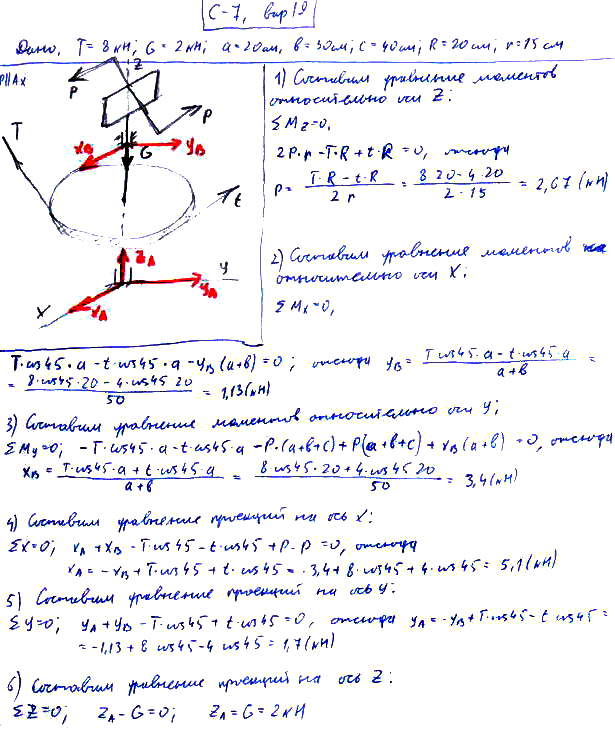 С-7, вар 19
Дано, T = 8 кН; G = 2 кН; a = 20 см, b = 30 см; c = 40 см; R = 20 см; r = 15 см
P||Ax
Z
P
P
T
XB
YB
G
t
ZA
Y
YA
X
XA
1) Составим уравнение моментов
относительно оси Z:
ΣMz=0,
2P·r - T·R + t·R = 0, отсюда
P = (T·R - t·R)/(2r) = (8·20 - 4·20)/(2·15) = 2,67 (кН)
2) Составим уравнение моментов
относительно оси X:
ΣMx=0,
T·cos45·a - t·cos45·a - YB(a+b) = 0; отсюда YB = (T·cos45·a - t·cos45·a)/(a+b) =
= (8·cos45·20 - 4·cos45·20)/50 = 1,13 (кН)
3) Составим уравнение моментов относительно оси y;
ΣMy=0; -T·cos45·a - t·cos45·a - P·(a+b+c) + P(a+b+c) + XB(a+b) = 0, отсюда
XB = (T·cos45·a + t·cos45·a)/(a+b) = (8cos45·20 + 4·cos45 20)/50 = 3,4 (кН)
4) Составим уравнение проекций на ось X:
ΣX=0; XA + XB - T·cos45 - t·cos45 + P - P = 0, отсюда
XA = -XB + T·cos45 + t·cos45 = -3,4 + 8·cos45 + 4·cos45 = 5,1 (кН)
5) Составим уравнение проекций на ось y:
Σy=0; YA + YB - T·cos45 + t·cos45 = 0, отсюда YA = -YB + T·cos45 - t·cos45 =
= -1,13 + 8 cos45 - 4 cos45 = 1,7 (кН)
6) Составим уравнение проекций на ось Z:
ΣZ=0; ZA - G = 0; ZA = G = 2 кН